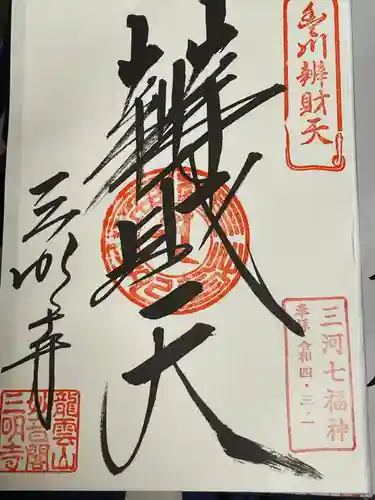 豊川辨財天
三河七福神
奉拝 令和四・三・一
辨財天
三明寺
龍雲山
妙音閣
三明寺